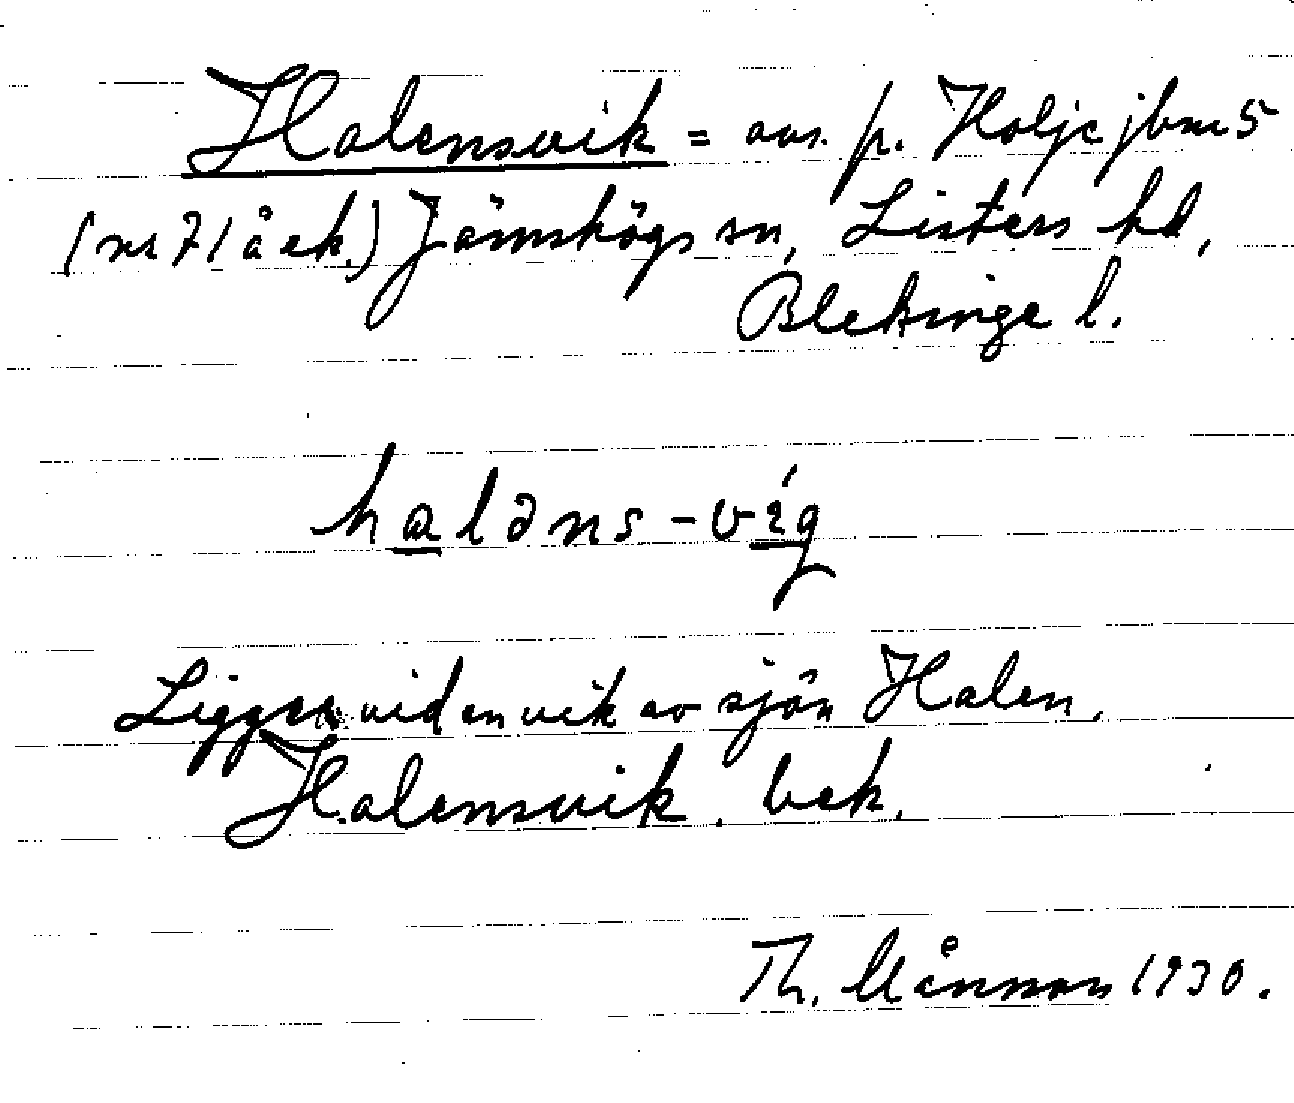 Halensvik = avs. p. Holje jbnr 5
(nr 71 å ek.) Jämshögs sn, Listers hd,
Blekinge l.
haləns-víg
Ligger vid en vik av sjön Halen.
Halensvik. bek.
Th. Månsson 1930.